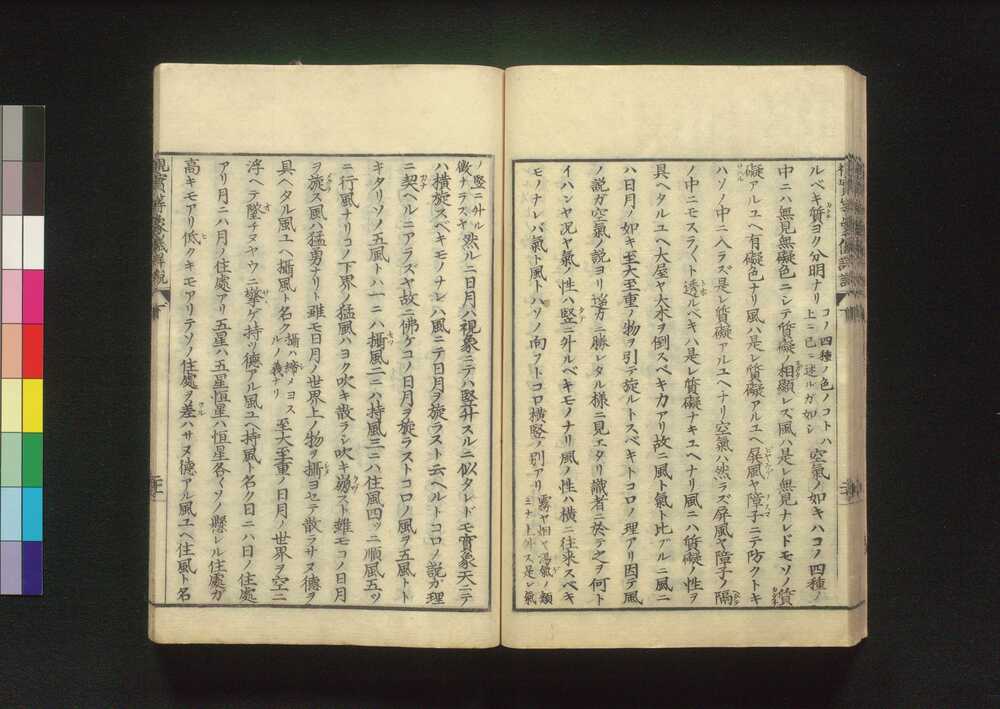 ルベキ質ヨク分明ナリ コノ四種ノ色ノコトハ上ニ已ニ述ルガ如シ 空氣ノ如キハコノ四種ノ
中ニハ無見無礙色ニシテ質礙相顯レズ風ハ是レ無見ナレドモソノ質
礙アルユヘ有礙色ナリ風ハ是レ質礙アルユヘ屏風ヤ障子ニテ防クトキ
ハソノ中ニ入ラズ是レ質礙アルユヘナリ空氣ハ然ラズ屏風ヤ障子ノ隔
ノ中ニモスラ〱ト透ルベキハ是レ質礙ナキユヘナリ風ニハ質礙ノ性ヲ
具ヘタルユヘ大屋ヤ大木ヲ倒スベキ力アリ故ニ風ト氣ト比ブルニ風ニ
ハ日月ノ如キ至大至重ノ物ヲ引テ旋ルトスベキトコロノ理アリ因テ風
ノ説ガ空氣ノ説ヨリ遥カニ勝レタル様ニ見エタリ識者ニ於テ之ヲ何ト
イハンヤ况ヤ氣ノ性ハ竪ニ外ルベキモノナリ風ノ性ハ横ニ往來スベキ
モノナレバ氣ト風トハソノ向フトコロ横竪ノ別アリ 霧ヤ烟ヤ湯氣ノ類ミナ上ニ外ス是レ氣
ノ竪ニ外ル徴ナラスヤ 然ルニ日月ハ視象ニテハ竪升スルニ似タレドモ實象天ニテ
ハ横旋スベキモノナレハ風ニテ日月ヲ旋ラスト云ヘルトコロノ説ガ理
ニ契ヘルニアラズヤ故ニ佛ケコノ日月ヲ旋ラストコロノ風ヲ五風トト
キタリソノ五風トハ一ニハ攝風二ニハ持風三ニハ住風四ツニ順風五ツ
ニ行風ナリコノ下界ノ猛風ハヨク吹キ散ラシ吹キ崩スト雖モコノ日月
ヲ旋ス風ハ猛勇ナリト雖モ日月ノ世界上ノ物ヲ攝ヨセテ散ラサヌ德ヲ
具ヘタル風ユヘ攝風ト名ク 攝ハ搚メヨスルノ義ナリ 至大至重ノ日月ノ世界ヲ空ニ
浮ヘテ墜チヌヤウニ擎ケ持ツ德アル風ユヘ持風ト名ク日ニハ日ノ住處
アリ月ニハ月ノ住處アリ五星ハ五星恒星ハ恒星各〱ソノ懸レル住處ガ
高キモアリ低クキモアリテソノ住處ヲ差ハサヌ德アル風ユヘ住風ト名